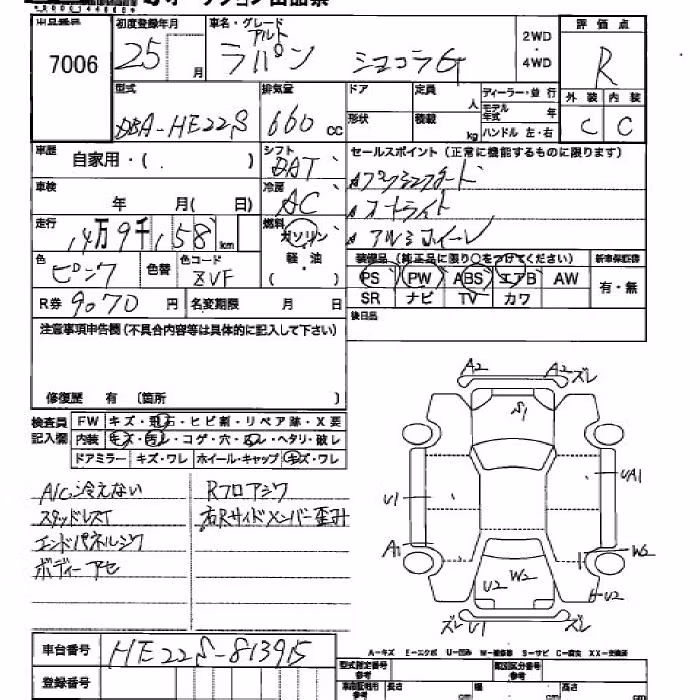 出品番号
7006
初度登録年月
25 月
車名・グレード
アルト
ラパン ショコラG
2WD
・
4WD
評価点
R
型式
DBA-HE22S
排気量
660 cc
ドア
形状
定員 人
積載 kg
ディーラー・並行
モデル年式 年
ハンドル 左・右
外装 内装
C C
車歴
自家用・( )
シフト
DAT
セールスポイント (正常に機能するものに限ります)
車検
年 月( 日)
冷房
AC
プッシュスタート
オートライト
アルミホイール
走行
14万9千158 km
燃料
ガソリン
軽・油
( )
色
ピンク
色替
色コード
ZVF
装備品 (純正品に限り○をつけてください)
新車保証書
PS PW ABS エアB AW
SR ナビ TV カワ
有・無
R券 9070 円
名変期限 月 日
後日品
注意事項申告欄 (不具合内容等は具体的に記入して下さい)
修復歴 有 〔箇所 〕
検査員
記入欄
FW キズ・飛石・ヒビ割・リペア跡・X要
内装 キズ・汚レ・コゲ・穴・ヌレ・ヘタリ・破レ
ドアミラー キズ・ワレ ホイール・キャップ キズ・ワレ
A/C冷えない
スタッドレスT
エンドパネルジワ
ボディーアセ
Rフロアジワ
右Rサイドメンバー歪み
A2
A2 ズレ
S1
U1
UA1
A1
W2
U2 W2
U2
ズレ U1
車台番号
HE22S-813915
登録番号
A-キズ E-エクボ U-凹み W-補修跡 S-サビ C-腐食 XX-交換済
型式指定番号
参考
類別区分番号
参考
長さ cm
幅 cm
高さ cm